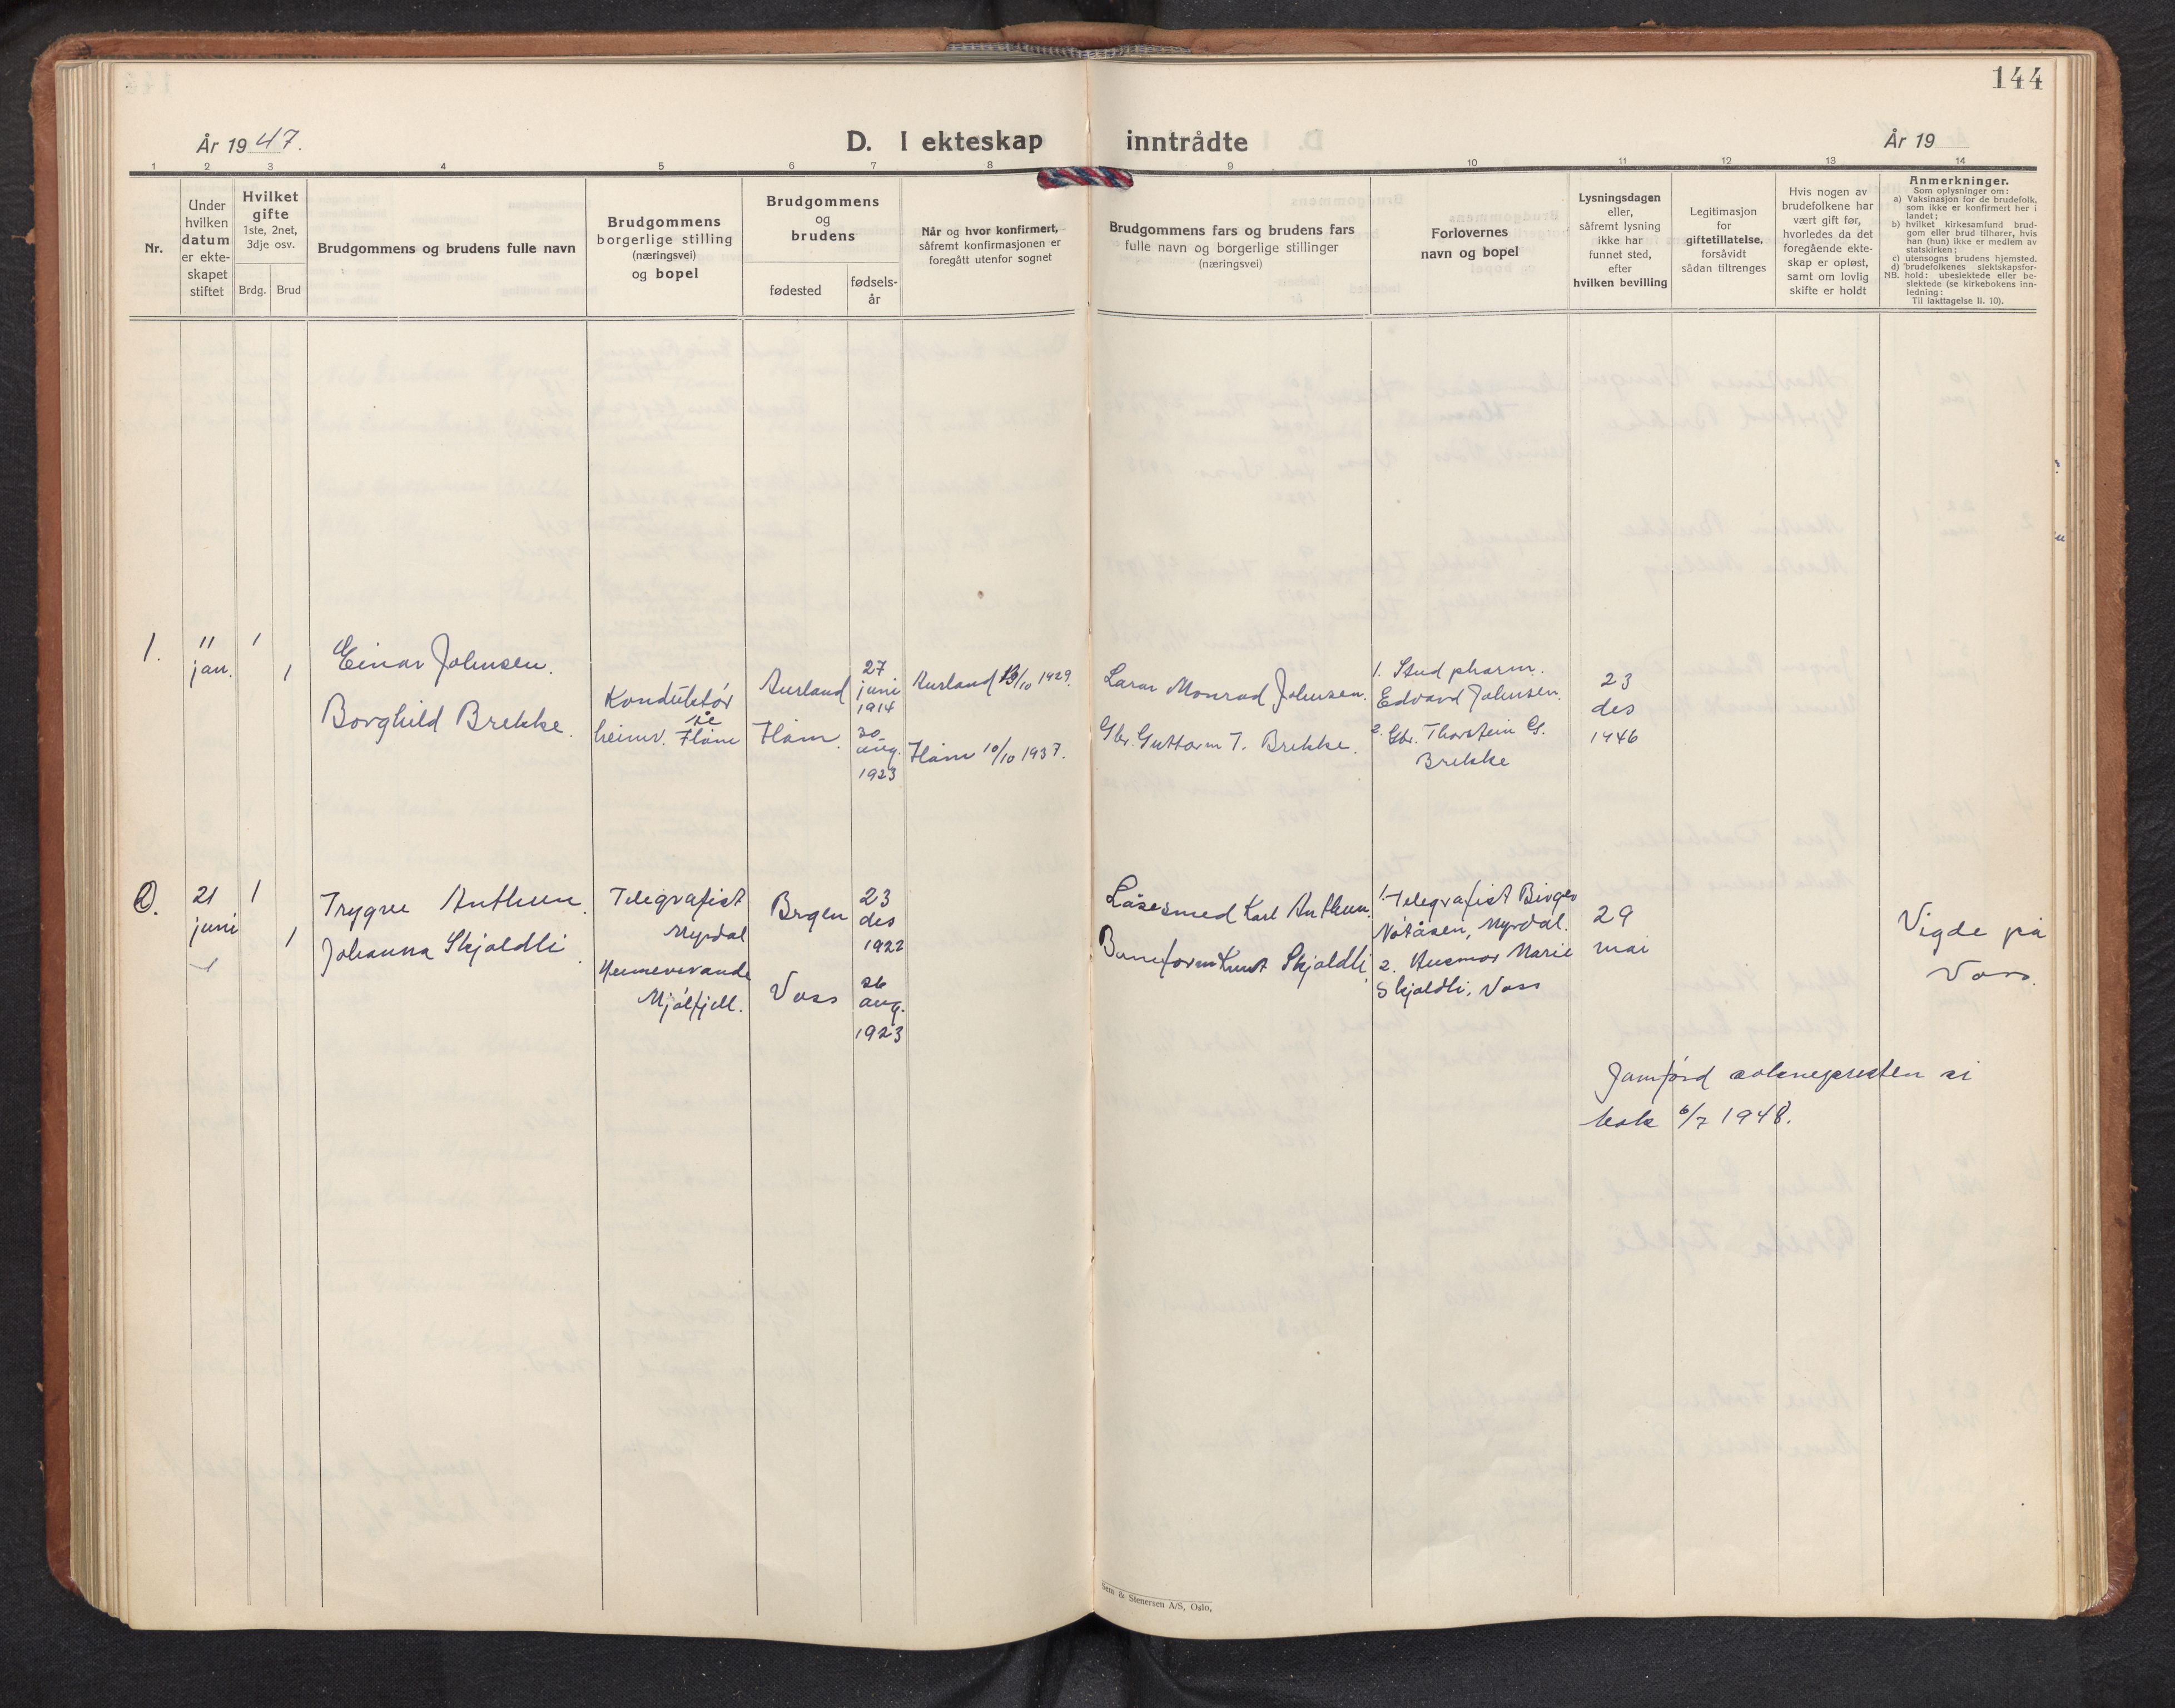 144
År 1947.
D. I ekteskap inntrådte
År 19
1 2 3 4 5 6 7 8 9 10 11 12 13 14
Nr.
Under
hvilken
datum
er ekte-
skapet
stiftet
Hvilket
gifte
1ste, 2net,
3dje osv.
Brdg. Brud
Brudgommens og brudens fulle navn
Brudgommens
borgerlige stilling
(næringsvei)
og bopel
Brudgommens
og
brudens
fødested
fødsels-
år
Når og hvor konfirmert,
såfremt konfirmasjonen er
foregått utenfor sognet
Brudgommens fars og brudens fars
fulle navn og borgerlige stillinger
(næringsvei)
Forlovernes
navn og bopel
Lysningsdagen
eller,
såfremt lysning
ikke har
funnet sted,
efter
hvilken bevilling
Legitimasjon
for
giftetillatelse,
forsåvidt
sådan tiltrenges
Hvis nogen av
brudefolkene har
vært gift før,
hvorledes da det
foregående ekte-
skap er opløst,
samt om lovlig
skifte er holdt
Anmerkninger.
Som oplysninger om:
a) Vaksinasjon for de brudefolk,
som ikke er konfirmert her i
landet;
b) hvilket kirkesamfund brud-
gom eller brud tilhører, hvis
han (hun) ikke er medlem av
statskirken;
c) utensogns brudens hjemsted.
d) brudefolkenes slektskapsfor-
NB. hold: ubeslektede eller be-
slektede (se kirkebokens inn-
ledning:
Til iakttagelse II. 10).
1.
11
jan.
1
1
Einar Johnsen.
Borghild Brekke.
Konduktør
heimv. Flåm
Aurland
Flåm.
27
juni
1914
20
aug.
1923
Aurland 13/10 1929.
Flåm 10/10 1937.
Larar Monrad Johnsen.
Gbr. Guttorm T. Brekke.
1. Stud pharm.
Edvard Johnsen.
2. Gbr. Thorstein G.
Brekke
23
des
1946
2.
21
juni
1
1
Trygve Anthun.
Johanna Skjoldli.
Telegrafist
Myrdal
Heimeverande
Mjølfjell.
Brgen
Voss
23
des
1922
26
aug.
1923
Låsesmed Karl Anthun.
Baneform Knut Skjoldli.
1. Telegrafist Birger
Notåsen, Myrdal.
2. Husmor Marie
Skjoldli, Voss
29
mai
Vigde på
Voss.
Jamførd soknepresten si
bok 6/7 1948.
Sem & Stenersen A/S, Oslo,